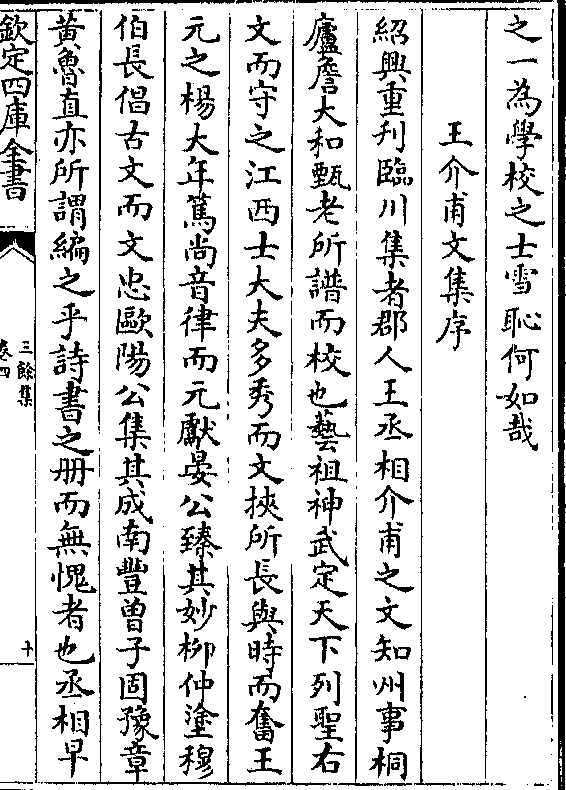 之一為學校之士雪恥何如哉
王介甫文集序
紹興重刋臨川集者郡人王丞相介甫之文知州事桐
廬詹大和甄老所譜而校也藝祖神武定天下列聖右
文而守之江西士大夫多秀而文挾所長與時而奮王
元之楊大年篤尚音律而元獻晏公臻其妙柳仲塗穆
伯長倡古文而文忠歐陽公集其成南豐曾子固豫章
黃魯直亦所謂編之乎詩書之册而無愧者也丞相早
欽定四庫全書
三餘集
卷四
十